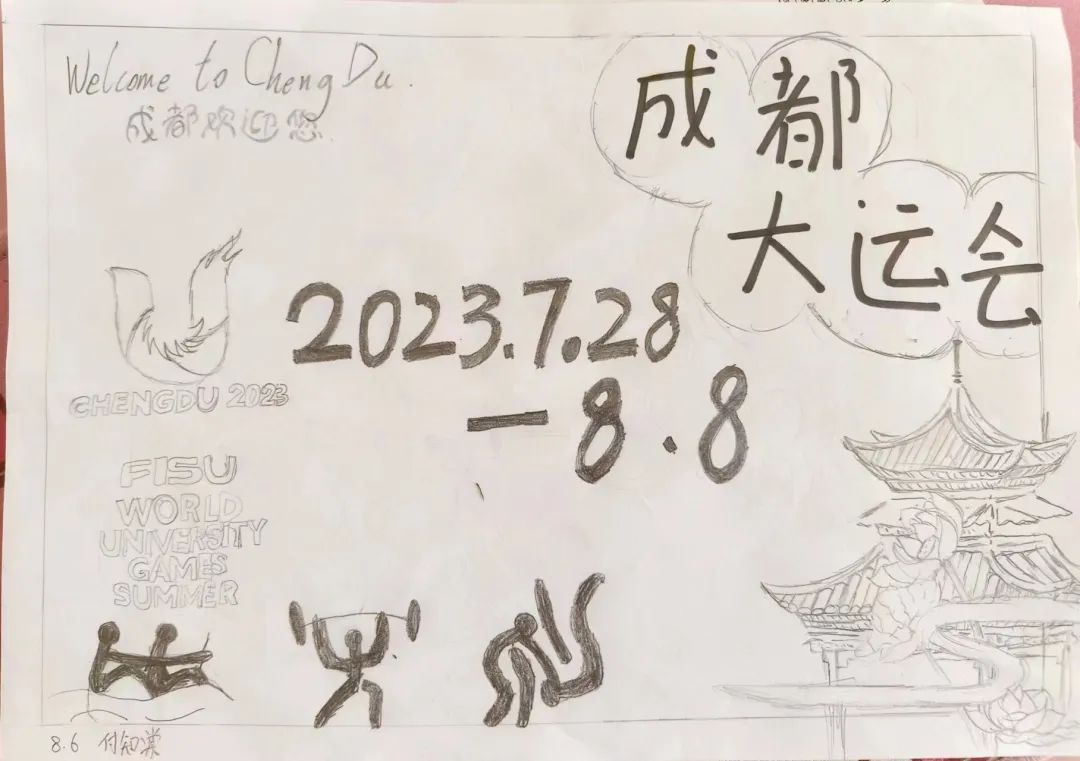 Welcome to ChengDu.
成都欢迎您
成都
大运会
2023.7.28
—8.8
CHENGDU 2023
FISU
WORLD
UNIVERSITY
GAMES
SUMMER
8.6 付知棠